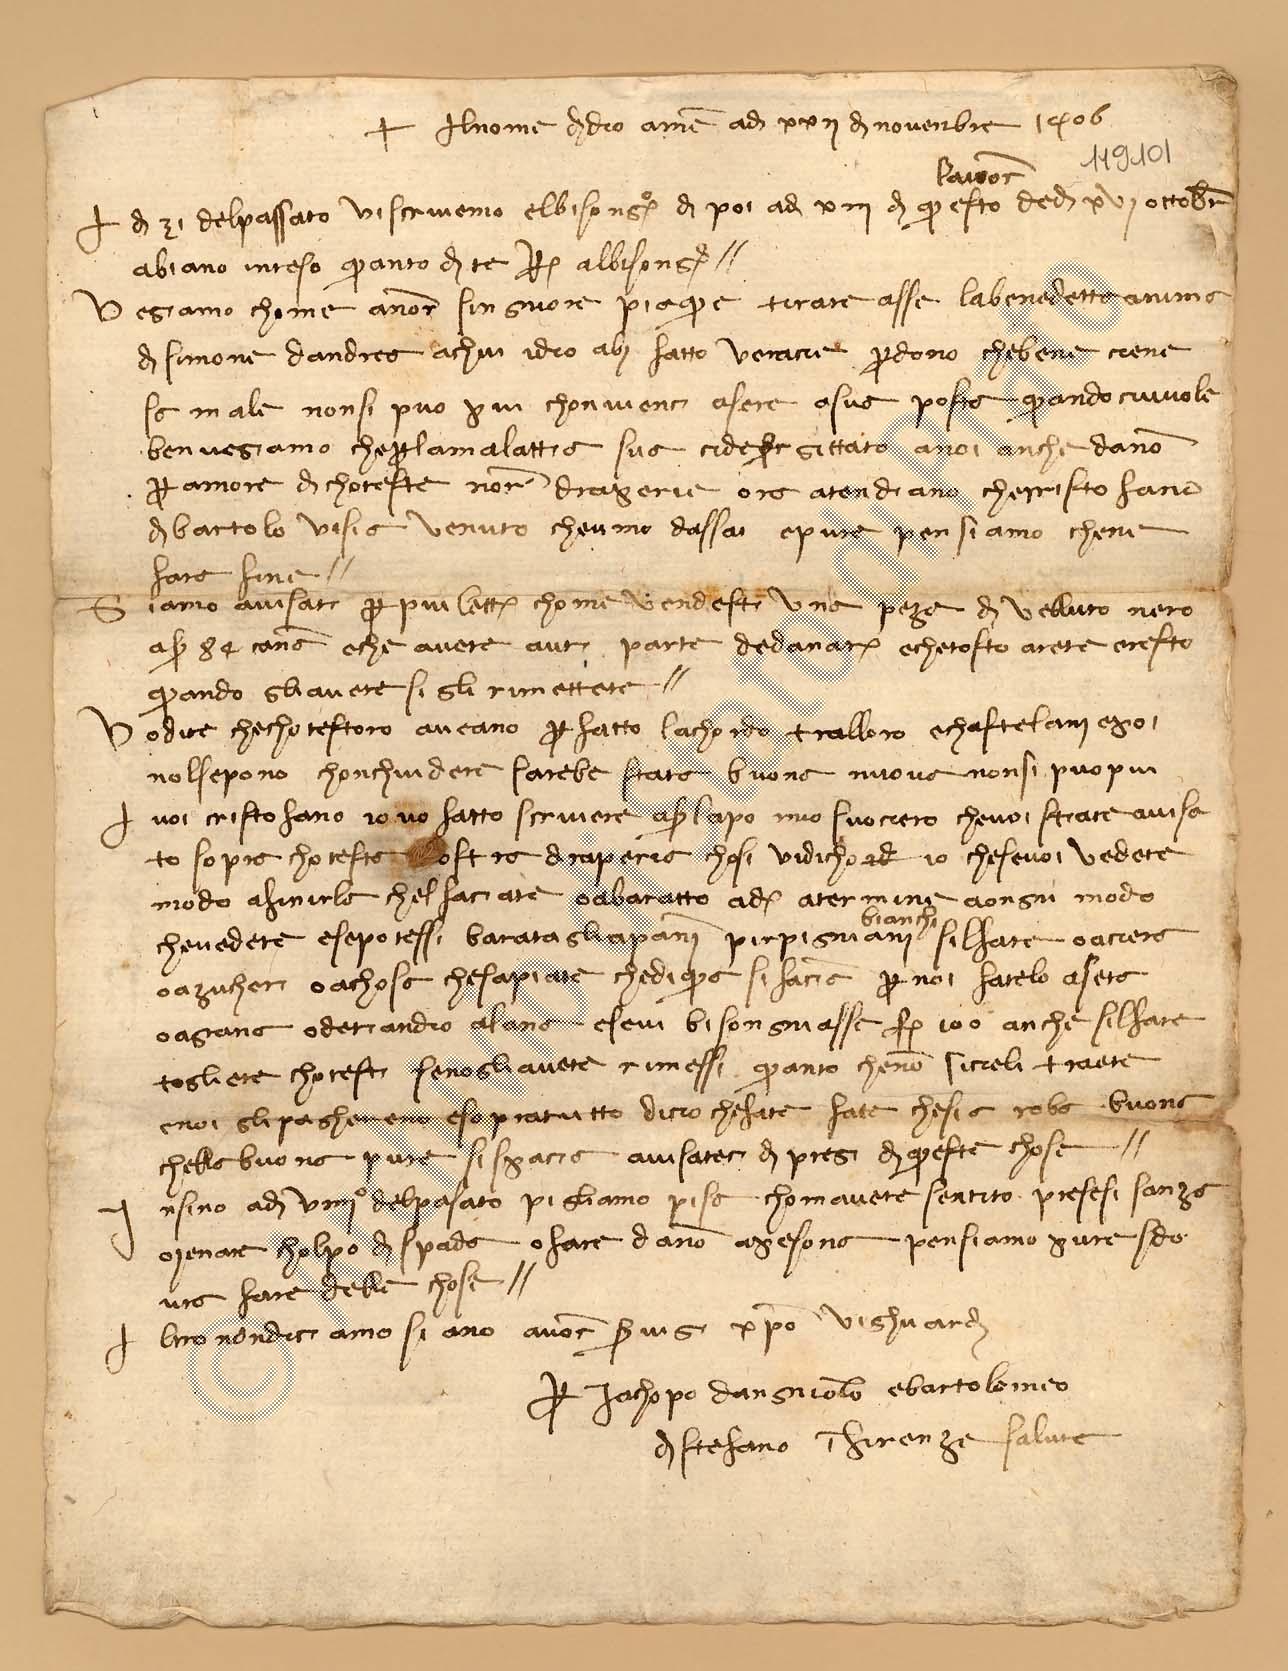 + Al nome di dio amē adi xxii di novenbre 1406
119101
la vōr
A dì 21 del passato vi scrivemo el bisongō di poi adì xiii di questo de dì xvi ottobr̄
abiano inteso quanto di te p albisong //
Vegiamo chome a nōr singnore piaque tirare asse la benedetta anima
di simone dandrea a chui idio abi fatto veracie perdono che bene ciene
sa male non si può più chonviene asere a sua posta quando civuole
ben vegiamo che per la malattia sua gittato a noi anche danō
per amore di choteste nor̄ draperie ora atendiano che cristofano
di bartolo vi sia venuto cheumo dassai e pure pensiamo che ne
fara fine //
Siamo avisati per piu lett chome vendesti una peza di velluto nero
a 84 cana e che avete auti parte de danari e che tosto arete eresto
quando gli avete si gli rimettete //
Vo dite che chotestoro aveano per fatto lachordo tralloro e chastelani e poi
nolsepono chonchiudere sarebe stata buona nuova non si puo piu
A voi cristofano io vo fatto scrivere a lapo mio suociero che voi siate avisa
to sopra chotesta nostra draperia chosi vi dicho io che se voi vedete
modo a finirla chel faciate o a baratto a termine a ongni modo
che vedete e se potessi baratagli a panni pirpigniani bianchi sil fate o a ciera
o a zuchen o a chosa che sapiate che di qua si facia per noi fatelo a seta
o a grana o detiandio a lana e se vi bisongniasse 100 anche sil fate
togliete chotesti se nogli avete rimessi quanto che nō si cieli traete
e noi gli pagheremo e sopra tutto dicio che fate fate che sia roba buona
chella buona pure si spacia avisateci di pregi di queste chose //
Insino adi viiii° del pasato pigliamo pisa chom avete sentito presesi sanza
menare cholpo di spada o fare danō a pesona pensiamo pure sdo
vra fare delle chose //
Altro nōn diciamo siano a vōr servigi xpō vi ghuardi
per Jachopo dangniolo e bartolomeo
di stefano in firenze salute